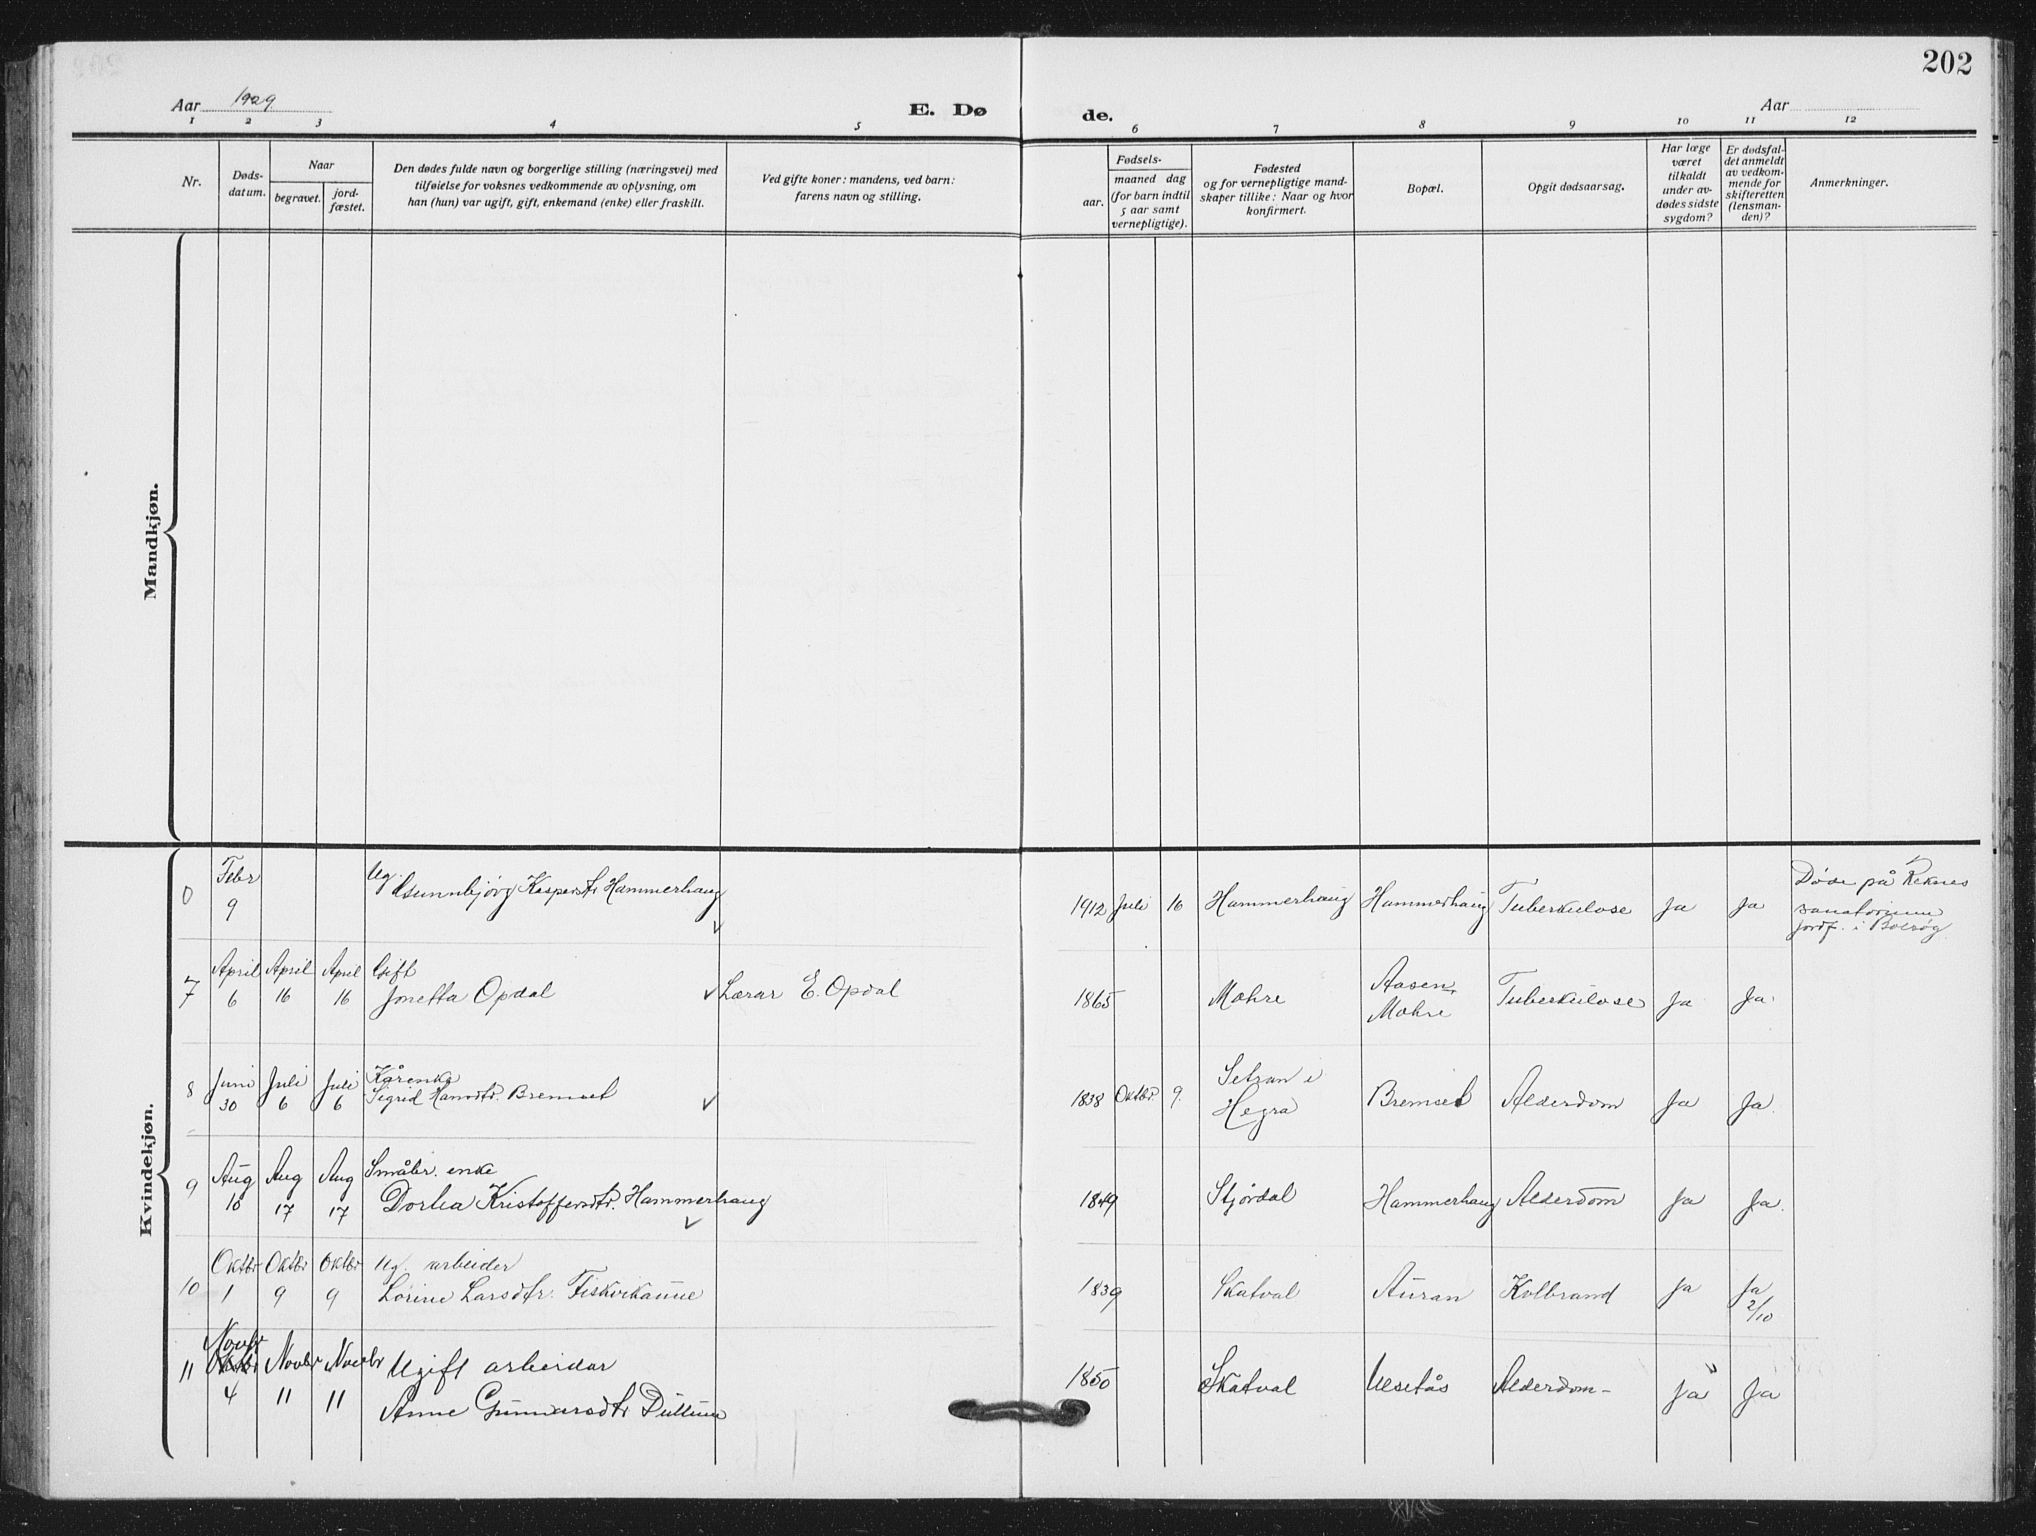 202
Aar 1929
E. Dø de.
Aar
1 2 3 4 5 6 7 8 9 10 11 12
Nr.
Døds-
datum.
Naar
begravet.
jord-
fæstet.
Den dødes fulde navn og borgerlige stilling (næringsvei) med
tilføielse for voksnes vedkommende av oplysning, om
han (hun) var ugift, gift, enkemand (enke) eller fraskilt.
Ved gifte koner: mandens, ved barn:
farens navn og stilling.
Fødsels-
aar.
maaned dag
(for barn indtil
5 aar samt
vernepligtige).
Fødested
og for vernepligtige mand-
skaper tillike: Naar og hvor
konfirmert.
Bopæl.
Opgit dødsaarsag.
Har læge
været
tilkaldt
under av-
dødes sidste
sygdom?
Er dødsfal-
det anmeldt
av vedkom-
mende for
skifteretten
(lensman-
den)?
Anmerkninger.
Mandkjøn.
Kvindekjøn.
0 Febr 9 Ug. Gunnbjørg Kaspersdtr Hammerhaug 1912 Juli 16 Hammerhaug Hammerhaug Tuberkulose Ja Ja Døde på Reknes
sanatorium
jordf. i Bolsøy
7 April 6 April 16 April 16 Gift
Jonetta Opdal Lærar E. Opdal 1865 Mæhre Aasen,
Mæhre Tuberkulose Ja Ja
8 Juni 30 Juli 6 Juli 6 Kårenke
Sigrid Hansdtr. Bremset 1838 Oktbr. 9. Setran i
Hegra Bremset Alderdom Ja Ja.
9 Aug 10 Aug 17 Aug 17 Småbr. enke
Dorhea Kristoffersdtr. Hammerhaug 1849 Stjørdal Hammerhaug Alderdom Ja Ja.
10 Oktbr 1 Oktbr 9 Oktbr 9 Ug. arbeider
Lorine Larsdtr. Fiskvikaune 1839 Skatval Auran Kolbrand Ja Ja
2/10
11 Novbr 4 Novbr 11 Novbr 11 Ugift arbeidar
Anne Gunnarsdtr Dullum 1850 Skatval Uksetås Alderdom- Ja Ja